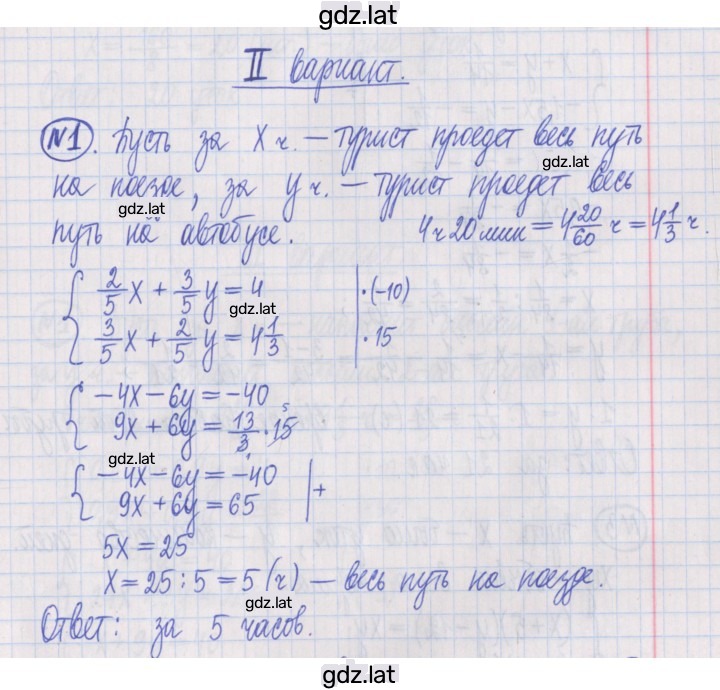 gdz.lat
II вариант.
№1. Пусть за x ч. – турист проедет весь путь
gdz.lat
на поезде, за y ч. – турист проедет весь
gdz.lat
путь на автобусе. 4ч 20 мин = 4 20/60 ч = 4 1/3 ч.
{ 2/5 x + 3/5 y = 4 | ·(-10)
gdz.lat
3/5 x + 2/5 y = 4 1/3 | ·15
{ -4x - 6y = -40
9x + 6y = 13/3 · 15 5
gdz.lat
{ -4x - 6y = -40 | +
9x + 6y = 65
5x = 25
x = 25 : 5 = 5 (ч) – весь путь на поезде.
gdz.lat
Ответ: за 5 часов.
gdz.lat